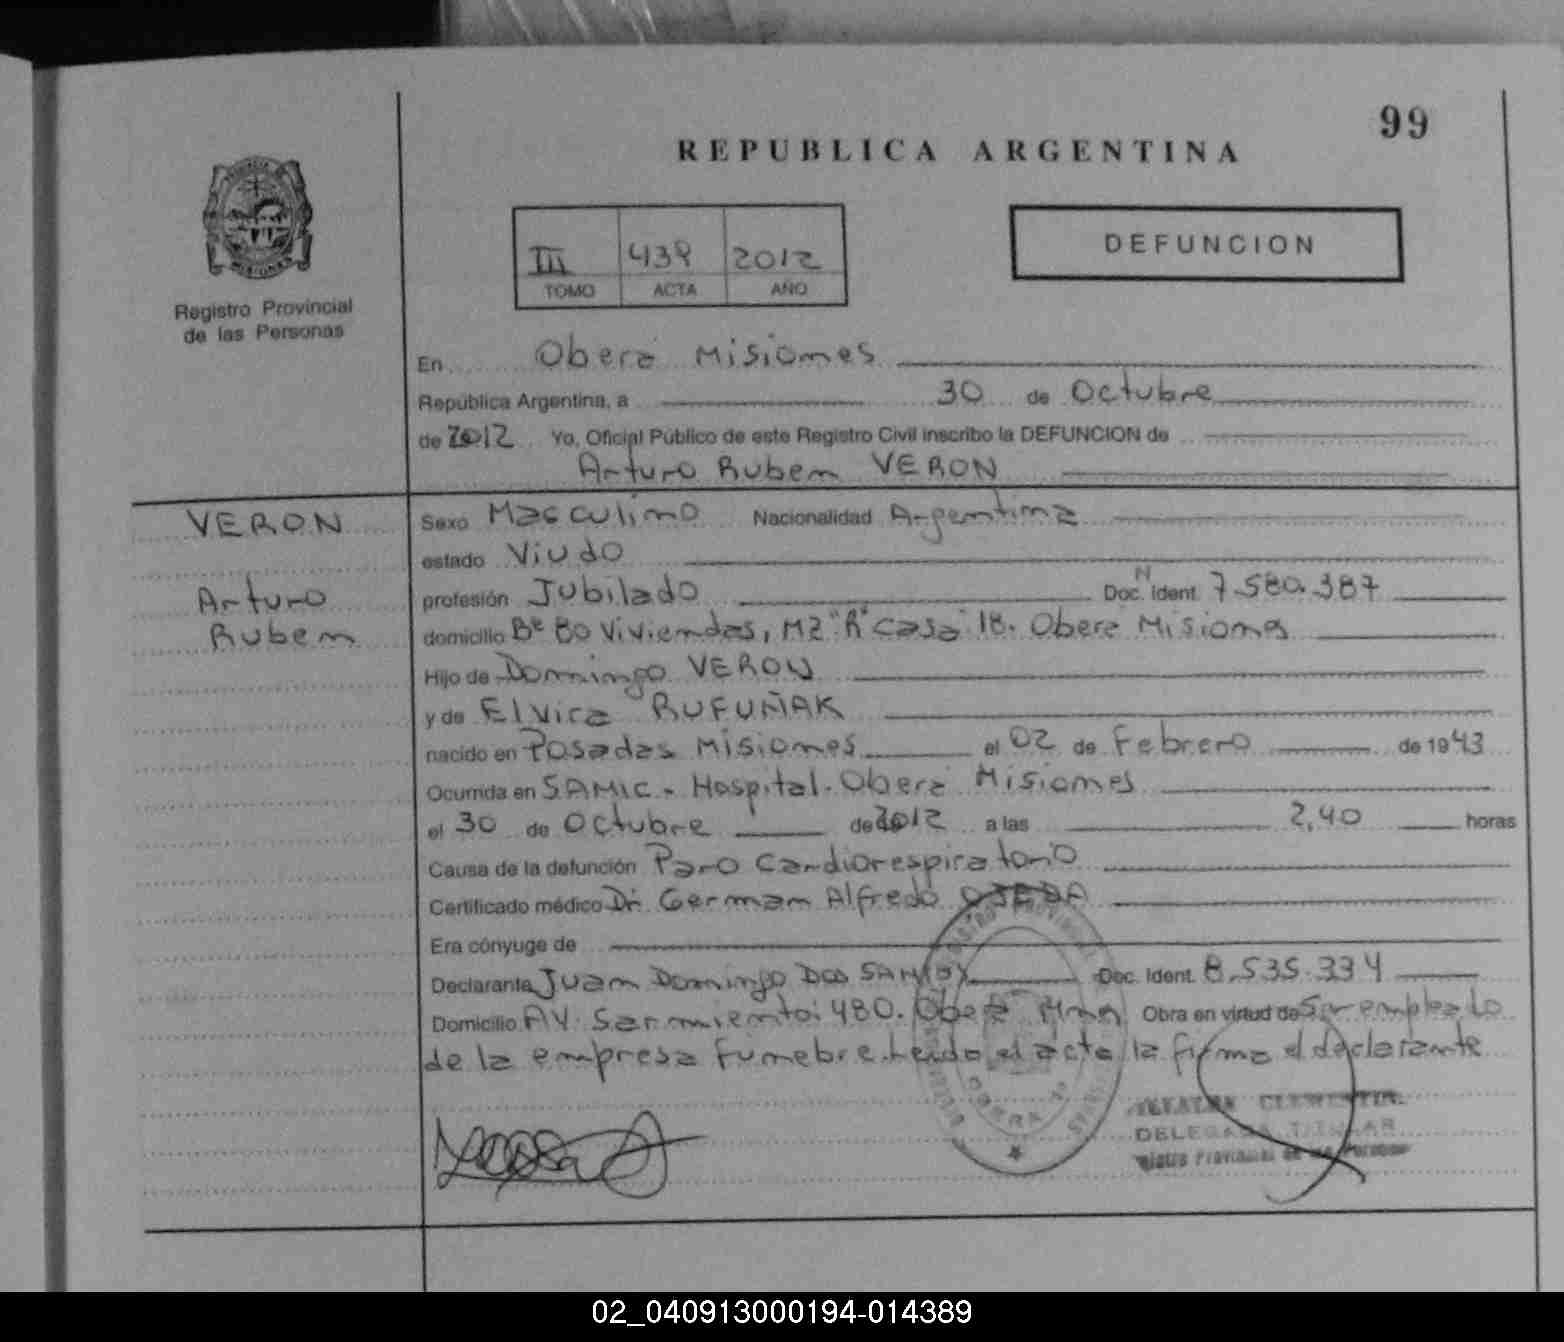 99
REPUBLICA ARGENTINA
Registro Provincial
de las Personas
III 439 2012
TOMO ACTA AÑO
DEFUNCION
En Oberá Misiones
República Argentina, a 30 de Octubre
de 2012 Yo, Oficial Público de este Registro Civil inscribo la DEFUNCION de
Arturo Ruben VERON
VERON
Arturo
Ruben
Sexo Masculino Nacionalidad Argentina
estado Viudo
profesión Jubilado Doc. N Ident. 7.580.387
domicilio Bº 80 Viviendas, MZ "A" casa 18. Oberá Misiones
Hijo de Domingo VERON
y de Elvira RUFUÑAK
nacido en Posadas Misiones el 02 de Febrero de 1943
Ocurrida en SAMIC - Hospital. Oberá Misiones
el 30 de Octubre de 2012 a las 2,40 horas
Causa de la defunción Paro Cardiorespiratorio
Certificado médico Dr. German Alfredo OJEDA
Era cónyuge de
Declarante Juan Domingo Dos SANTOS Doc. Ident. 8.535.334
Domicilio AV. Sarmiento: 480. Oberá Mnes Obra en virtud de Ser empleado
de la empresa funebre. Leido el acta la firma el declarante
DELEGADA TITULAR
02_040913000194-014389